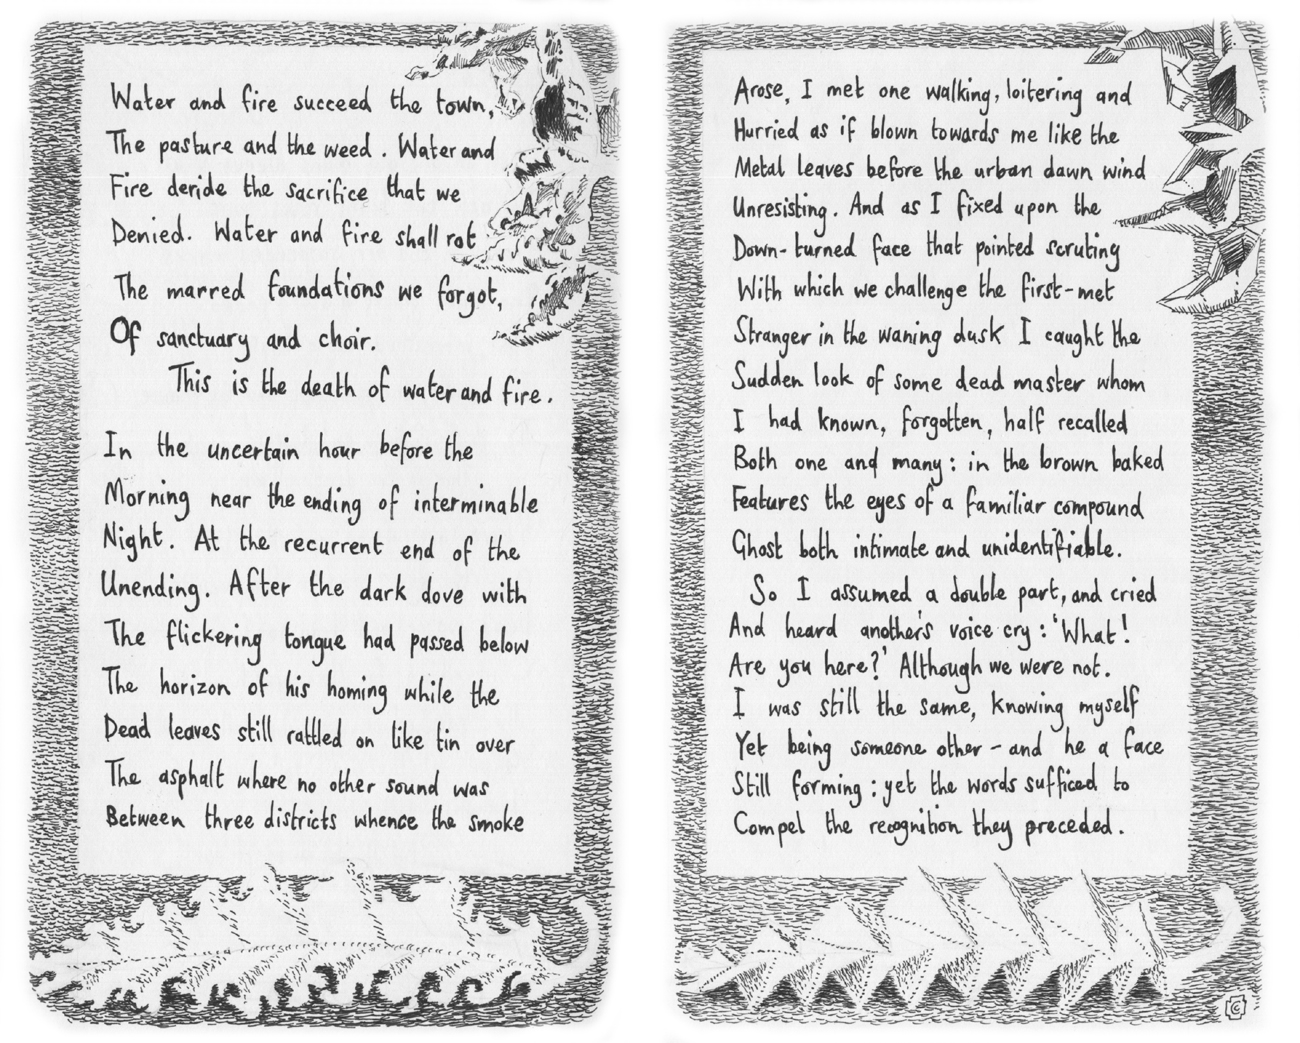 Water and fire succeed the town,
The pasture and the weed. Water and
Fire deride the sacrifice that we
Denied. Water and fire shall rot
The marred foundations we forgot,
Of sanctuary and choir.
This is the death of water and fire.
In the uncertain hour before the
Morning near the ending of interminable
Night. At the recurrent end of the
Unending. After the dark dove with
The flickering tongue had passed below
The horizon of his homing while the
Dead leaves still rattled on like tin over
The asphalt where no other sound was
Between three districts whence the smoke
Arose, I met one walking, loitering and
Hurried as if blown towards me like the
Metal leaves before the urban dawn wind
Unresisting. And as I fixed upon the
Down-turned face that pointed scrutiny
With which we challenge the first-met
Stranger in the waning dusk I caught the
Sudden look of some dead master whom
I had known, forgotten, half recalled
Both one and many: in the brown baked
Features the eyes of a familiar compound
Ghost both intimate and unidentifiable.
So I assumed a double part, and cried
And heard another's voice cry: 'What!
Are you here?' Although we were not.
I was still the same, knowing myself
Yet being someone other - and he a face
Still forming: yet the words sufficed to
Compel the recognition they preceded.
C